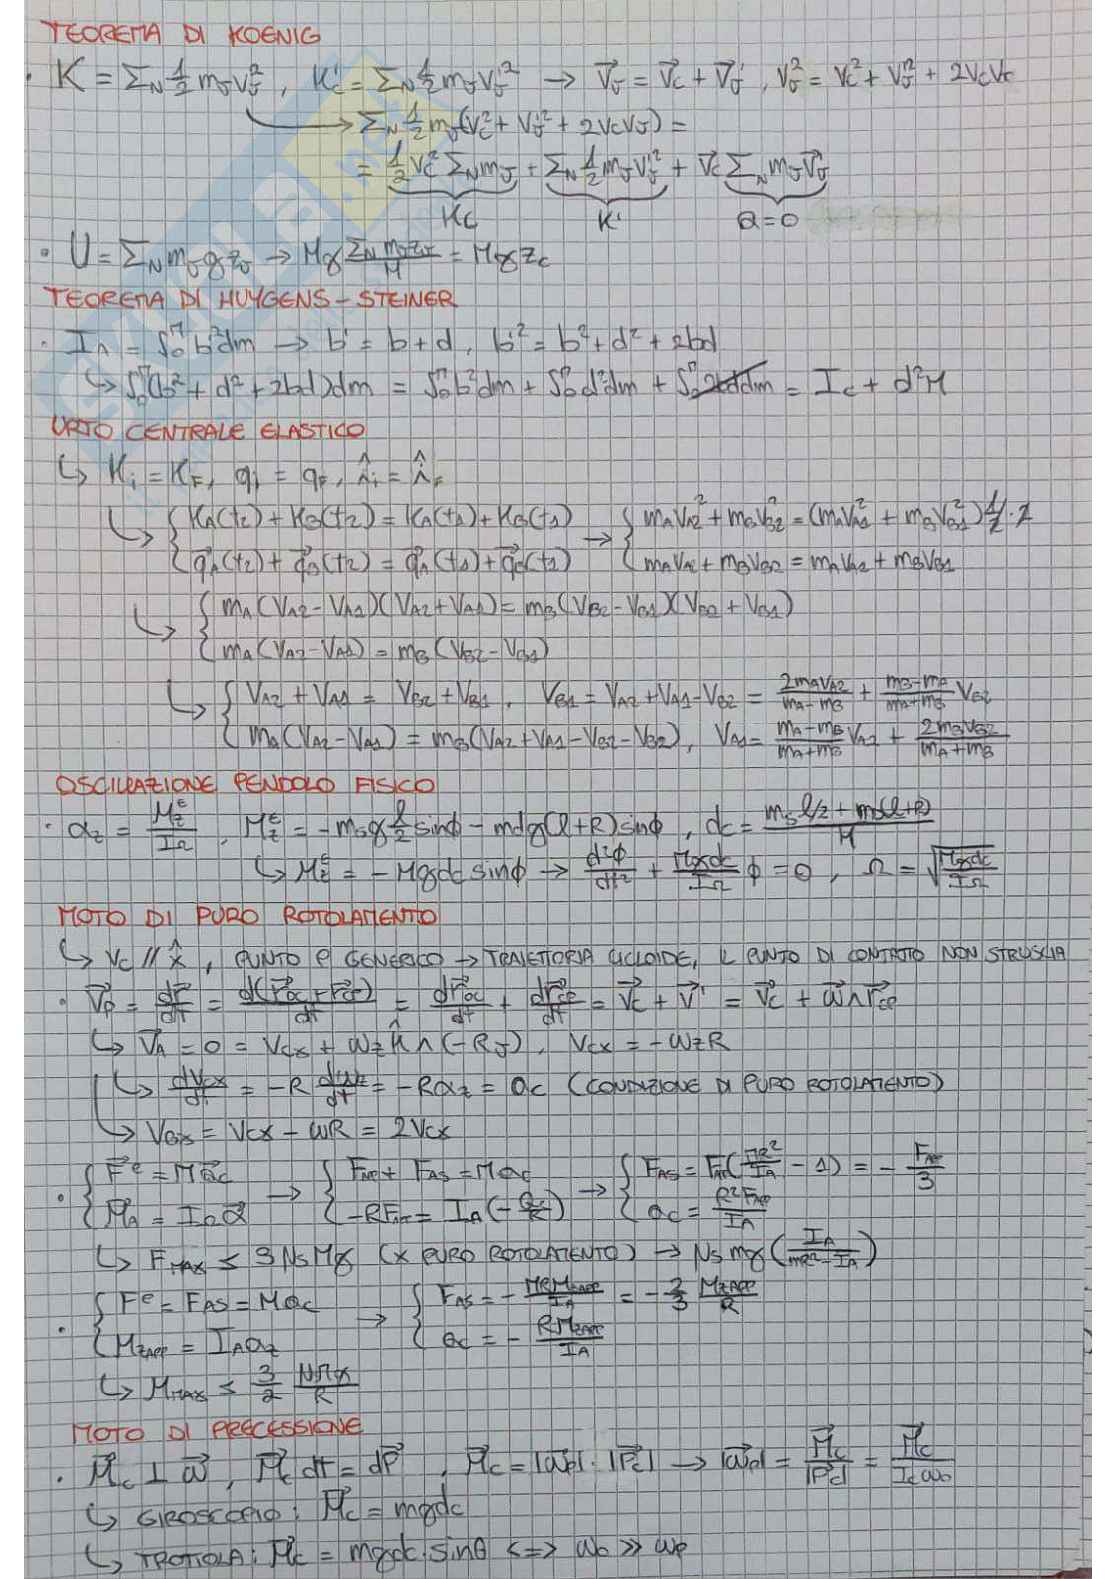 TEOREMA DI KOENIG
· K = Σ_N 1/2 m_J v_J², K'_C = Σ_N 1/2 m_J v_J'² → v⃗_J = v⃗_C + v⃗_J', v_J² = v_C² + v_J'² + 2v_C v_C
→ Σ_N 1/2 m_J (v_C² + v_J'² + 2v_C v_J) =
= 1/2 v_C² Σ_N m_J + Σ_N 1/2 m_J v_J'² + v⃗_C Σ_N m_J v⃗_J
K_C K' Q=0
· U = Σ_N m_J g z_J → Mg Σ_N m_J z_J / M = Mg z_C
TEOREMA DI HUYGENS - STEINER
· I_A = ∫₀ᴹ b'² dm → b' = b + d, b'² = b² + d² + 2bd
↳ ∫₀ᴹ (b² + d² + 2bd) dm = ∫₀ᴹ b² dm + ∫₀ᴹ d² dm + ∫₀ᴹ 2bd dm = I_C + d²M
URTO CENTRALE ELASTICO
↳ K_i = K_F, q_i = q_F, λ̂_i = λ̂_F
↳ { K_A(t₂) + K_B(t₂) = K_A(t₁) + K_B(t₁) → { m_A v_A2² + m_B v_B2² = (m_A v_A1² + m_B v_B1²) 1/2 · 2
{ q⃗_A(t₂) + q⃗_B(t₂) = q⃗_A(t₁) + q⃗_B(t₁) { m_A v_A2 + m_B v_B2 = m_A v_A2 + m_B v_B1
↳ { m_A (v_A2 - v_A1)(v_A2 + v_A1) = m_B (v_B2 - v_B1)(v_B2 + v_B1)
{ m_A (v_A2 - v_A1) = m_B (v_B2 - v_B1)
↳ { v_A2 + v_A1 = v_B2 + v_B1, v_B1 = v_A2 + v_A1 - v_B2 = 2m_A v_A2 / (m_A - m_B) + (m_B - m_A)/(m_A + m_B) v_B2
{ m_A (v_A2 - v_A1) = m_B (v_A2 + v_A1 - v_B2 - v_B2), v_A1 = (m_A - m_B)/(m_A + m_B) v_A2 + 2m_B v_B2 / (m_A + m_B)
OSCILLAZIONE PENDOLO FISICO
· α_z = M_z^E / I_Ω, M_z^E = -m_s g l/2 sinϕ - m_d g(l+R) sinϕ, d_C = (m_s l/2 + m_d(l+R)) / M
↳ M_z^E = -Mg d_C sinϕ → d²ϕ/dt² + Mg d_C / I_Ω ϕ = 0, Ω = √(Mg d_C / I_Ω)
MOTO DI PURO ROTOLAMENTO
↳ v_C // x̂, PUNTO P GENERICO → TRAIETTORIA CICLOIDE, IL PUNTO DI CONTATTO NON STRUSCIA
· v⃗_P = dr⃗/dt = d(r⃗_OC + r⃗_CP)/dt = dr⃗_OC/dt + dr⃗_CP/dt = v⃗_C + v⃗' = v⃗_C + ω⃗∧r⃗_CP
↳ v⃗_A = 0 = v_Cx + ω_z k̂∧(-R_J), v_Cx = -ω_z R
↳ dv_Cx/dt = -R dω_z/dt = -Rα_z = a_C (CONDIZIONE DI PURO ROTOLAMENTO)
↳ v_Bx = v_Cx - ωR = 2v_Cx
· { F⃗^e = M a⃗_C → { F_AP + F_AS = M a_C → { F_AS = F_AP (MR²/I_A - 1) = - F_AP/3
{ M⃗_A = I_A α⃗ { -R F_AP = I_A (- a_C/R) { a_C = R² F_AP / I_A
↳ F_MAX ≤ 3 N_S Mg (X PURO ROTOLAMENTO) → N_S mg (I_A / (mR² - I_A))
· { F^e = F_AS = M a_C → { F_AS = - MR M_zAPP / I_A = - 2/3 M_zAPP / R
{ M_zAPP = I_A α_z { a_C = - R M_zAPP / I_A
↳ M_MAX ≤ 3/2 NMg / R
MOTO DI PRECESSIONE
· M⃗_C ⊥ ω⃗, M⃗_C dt = dP⃗, M⃗_C = |ω⃗_P| · |P⃗_C| → |ω⃗_P| = M⃗_C / |P⃗_C| = M⃗_C / I_C ω_0
↳ GIROSCOPIO: M⃗_C = mgd_C
↳ TROTTOLA: M⃗_C = mgd_C · sinθ <=> ω_0 >> ω_P